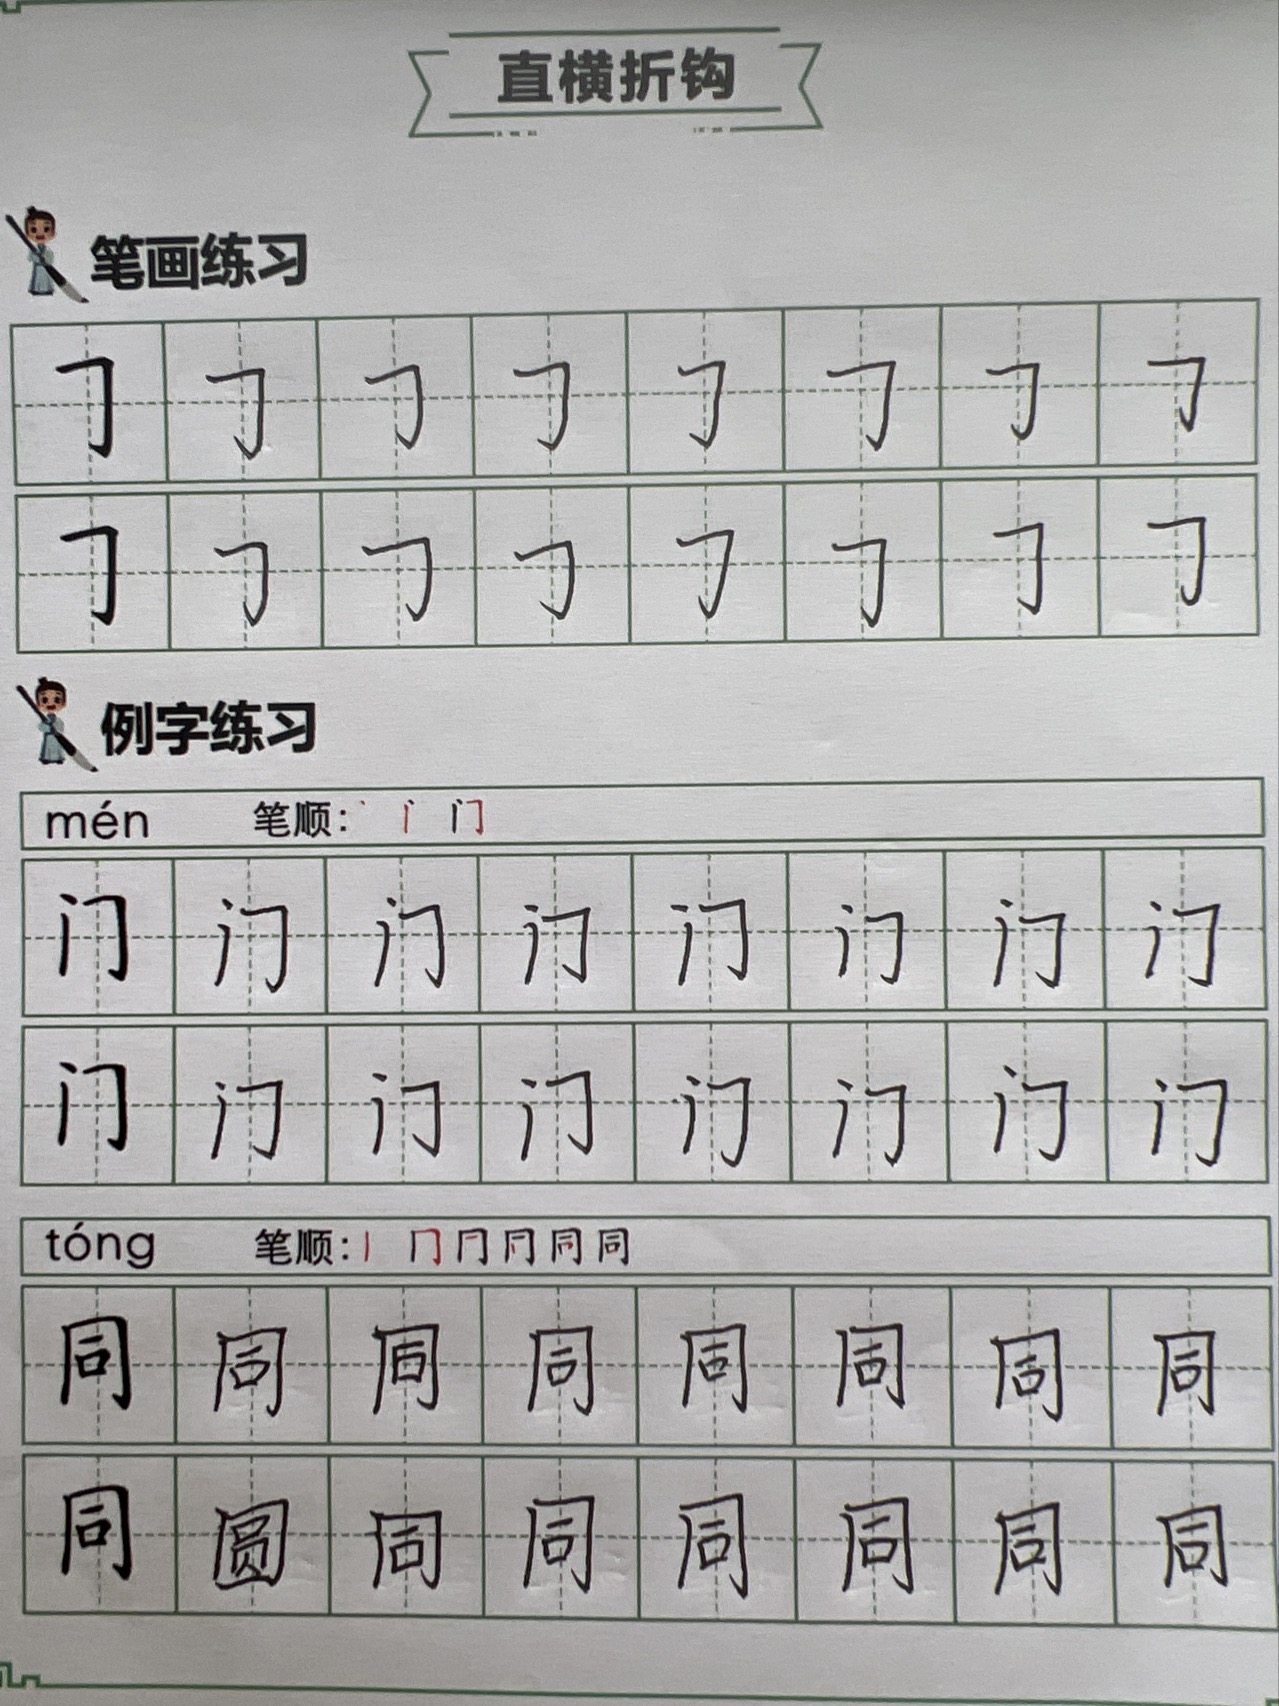 直横折钩
笔画练习
𠃌 𠃌 𠃌 𠃌 𠃌 𠃌 𠃌 𠃌
𠃌 𠃌 𠃌 𠃌 𠃌 𠃌 𠃌 𠃌
例字练习
mén 笔顺：丶 丨 门
门 门 门 门 门 门 门 门
门 门 门 门 门 门 门 门
tóng 笔顺：丨 冂 同
同 同 同 同 同 同 同 同
同 圆 同 同 同 同 同 同